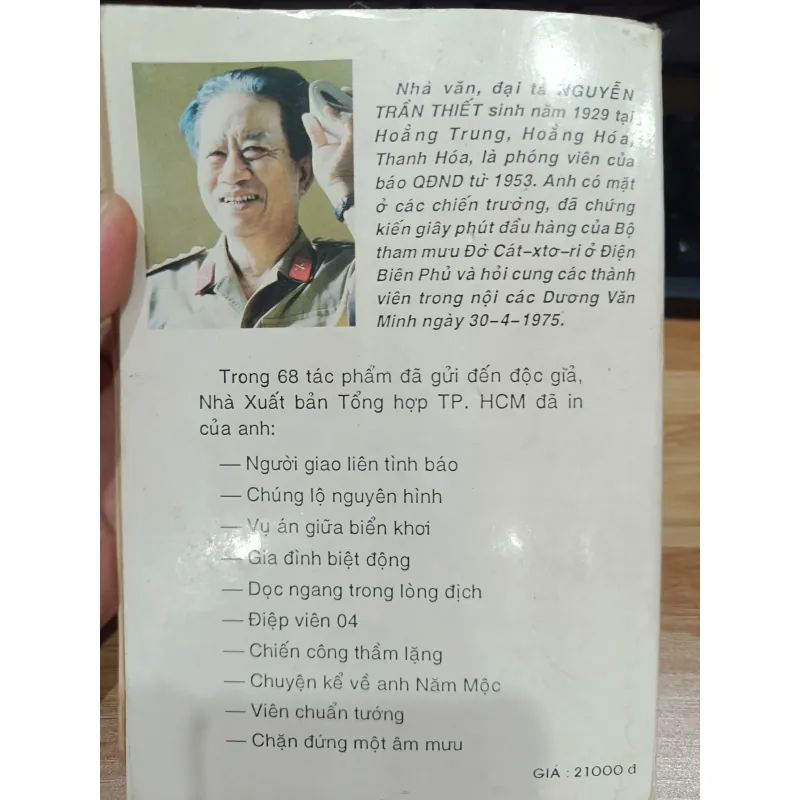 Nhà văn, đại tá NGUYỄN
TRẦN THIẾT sinh năm 1929 tại
Hoằng Trung, Hoằng Hóa,
Thanh Hóa, là phóng viên của
báo QĐND từ 1953. Anh có mặt
ở các chiến trường, đã chứng
kiến giây phút đầu hàng của Bộ
tham mưu Đờ Cát-xtơ-ri ở Điện
Biên Phủ và hỏi cung các thành
viên trong nội các Dương Văn
Minh ngày 30-4-1975.
Trong 68 tác phẩm đã gửi đến độc giả,
Nhà Xuất bản Tổng hợp TP. HCM đã in
của anh:
— Người giao liên tình báo
— Chúng lộ nguyên hình
— Vụ án giữa biển khơi
— Gia đình biệt động
— Dọc ngang trong lòng địch
— Điệp viên 04
— Chiến công thầm lặng
— Chuyện kể về anh Năm Mộc
— Viên chuẩn tướng
— Chặn đứng một âm mưu
GIÁ : 21000 đ